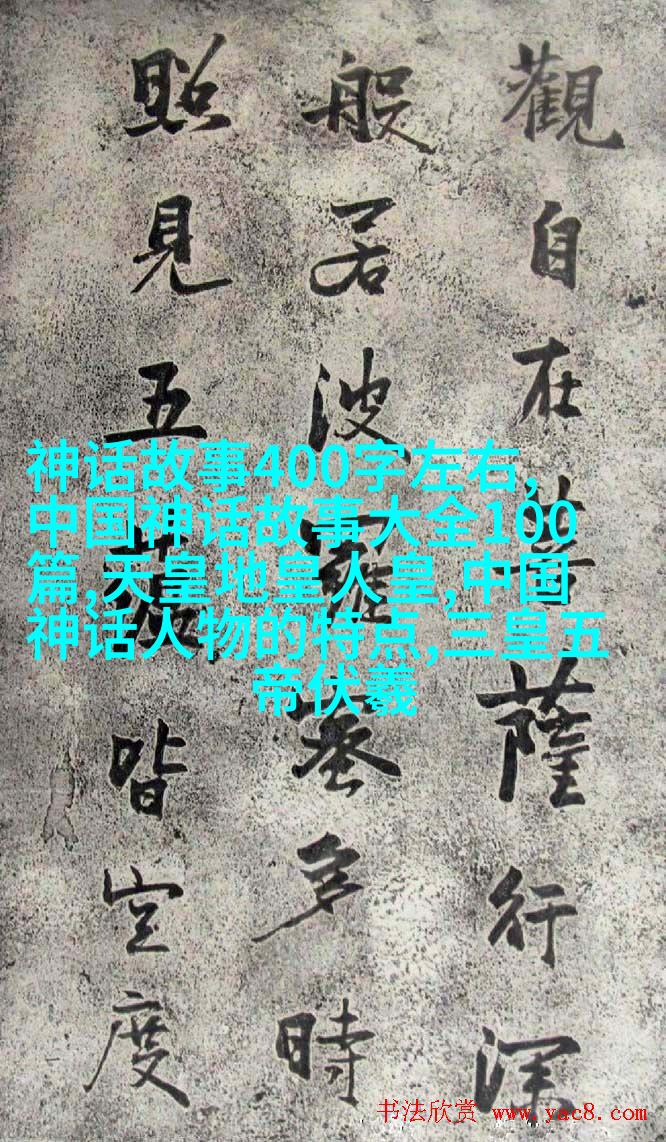 觀自在菩薩行深
般若波羅蜜多時
照見五蘊皆空度
神话故事400字左右,
中国神话故事大全100
篇,天皇地皇人皇,中国
神话人物的特点,三皇五
帝伏羲
书法欣赏 www.yac8.com